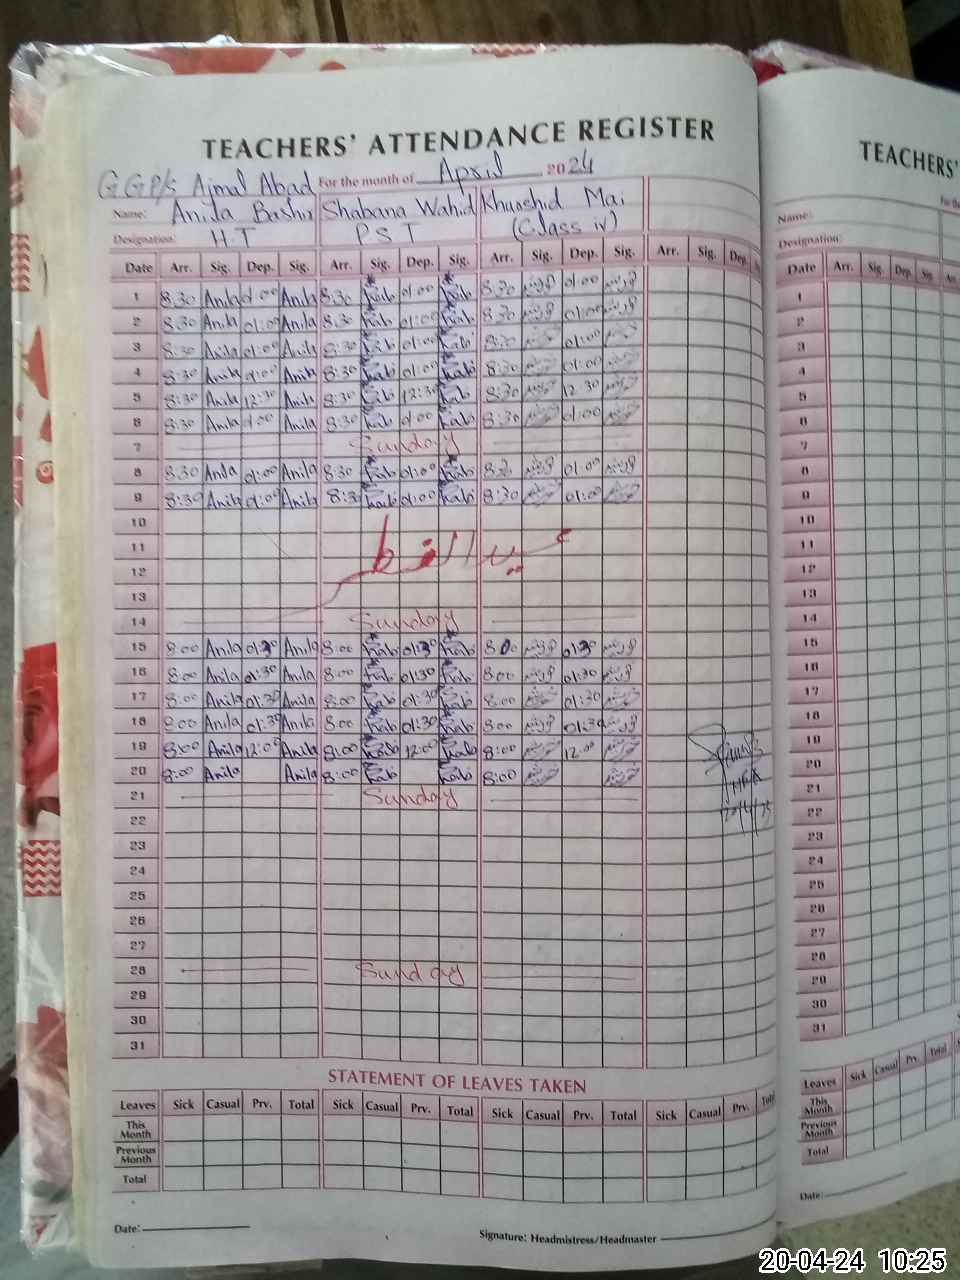 TEACHERS' ATTENDANCE REGISTER
GGP/s Ajmal Abad For the month of April 2024
Name: Anila Bashir Shabana Wahid Khurshid Mai
Designation: HT PST (Class iv)
Date Arr. Sig. Dep. Sig. Arr. Sig. Dep. Sig. Arr. Sig. Dep. Sig. Arr. Sig. Dep.
1 8:30 Anila 01:00 Anila 8:30 01:00 8:30 01:00
2 8:30 Anila 01:00 Anila 8:30 01:00 8:30 01:00
3 8:30 Anila 01:00 Anila 8:30 01:00 8:30 01:00
4 8:30 Anila 01:00 Anila 8:30 01:00 8:30 01:00
5 8:30 Anila 12:30 Anila 8:30 12:30 8:30 12:30
6 8:30 Anila 01:00 Anila 8:30 01:00 8:30 01:00
7 Sunday
8 8:30 Anila 01:00 Anila 8:30 01:00 8:30 01:00
9 8:30 Anila 01:00 Anila 8:30 01:00 8:30 01:00
10
11 عید الفطر
12
13
14 Sunday
15 8:00 Anila 01:30 Anila 8:00 01:30 8:00 01:30
16 8:00 Anila 01:30 Anila 8:00 01:30 8:00 01:30
17 8:00 Anila 01:30 Anila 8:00 01:30 8:00 01:30
18 8:00 Anila 01:30 Anila 8:00 01:30 8:00 01:30
19 8:00 Anila 12:00 Anila 8:00 12:00 8:00 12:00
20 8:00 Anila Anila 8:00 8:00
21 Sunday
22
23
24
25
26
27
28 Sunday
29
30
31
STATEMENT OF LEAVES TAKEN
Leaves Sick Casual Prv. Total Sick Casual Prv. Total Sick Casual Prv. Total Sick Casual Prv.
This Month
Previous Month
Total
Date:
Signature: Headmistress/Headmaster
TEACHERS'
Name:
Designation:
Date Arr. Sig. Dep. Sig.
1
2
3
4
5
6
7
8
9
10
11
12
13
14
15
16
17
18
19
20
21
22
23
24
25
26
27
28
29
30
31
Leaves Sick Casual Prv. Total
This Month
Previous Month
Total
Date:
20-04-24 10:25